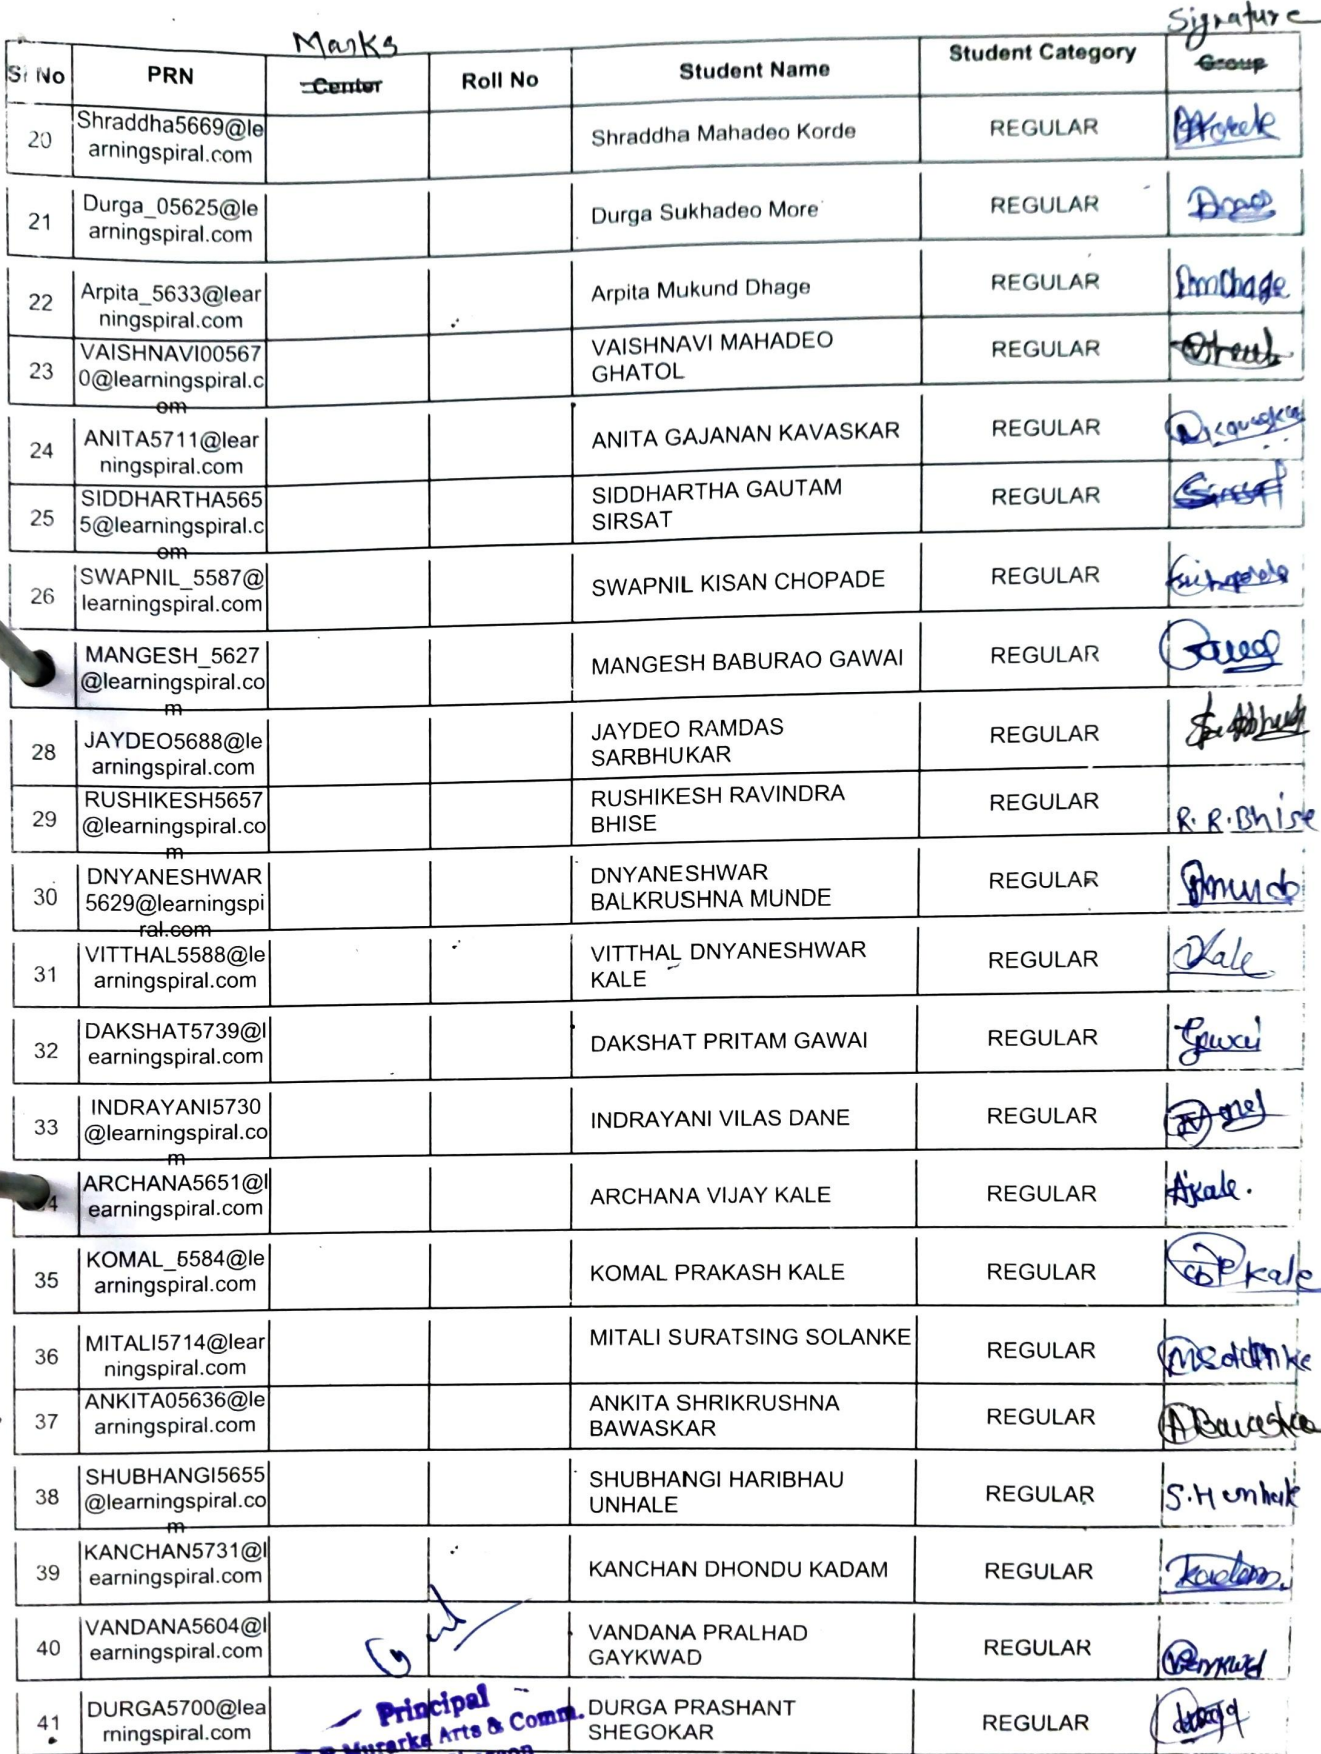 Signature
Marks
Sl No PRN Center Roll No Student Name Student Category Group
20 Shraddha5669@le
arningspiral.com Shraddha Mahadeo Korde REGULAR
21 Durga_05625@le
arningspiral.com Durga Sukhadeo More REGULAR
22 Arpita_5633@lear
ningspiral.com Arpita Mukund Dhage REGULAR
23 VAISHNAVI00567
0@learningspiral.c
om VAISHNAVI MAHADEO
GHATOL REGULAR
24 ANITA5711@lear
ningspiral.com ANITA GAJANAN KAVASKAR REGULAR
25 SIDDHARTHA565
5@learningspiral.c
om SIDDHARTHA GAUTAM
SIRSAT REGULAR Sirsat
26 SWAPNIL_5587@
learningspiral.com SWAPNIL KISAN CHOPADE REGULAR
MANGESH_5627
@learningspiral.co
m MANGESH BABURAO GAWAI REGULAR
28 JAYDEO5688@le
arningspiral.com JAYDEO RAMDAS
SARBHUKAR REGULAR
29 RUSHIKESH5657
@learningspiral.co
m RUSHIKESH RAVINDRA
BHISE REGULAR R. R. Bhise
30 DNYANESHWAR
5629@learningspi
ral.com DNYANESHWAR
BALKRUSHNA MUNDE REGULAR
31 VITTHAL5588@le
arningspiral.com VITTHAL DNYANESHWAR
KALE REGULAR VKale
32 DAKSHAT5739@l
earningspiral.com DAKSHAT PRITAM GAWAI REGULAR Gawai
33 INDRAYANI5730
@learningspiral.co
m INDRAYANI VILAS DANE REGULAR
4 ARCHANA5651@l
earningspiral.com ARCHANA VIJAY KALE REGULAR A.kale.
35 KOMAL_5584@le
arningspiral.com KOMAL PRAKASH KALE REGULAR kale
36 MITALI5714@lear
ningspiral.com MITALI SURATSING SOLANKE REGULAR
37 ANKITA05636@le
arningspiral.com ANKITA SHRIKRUSHNA
BAWASKAR REGULAR
38 SHUBHANGI5655
@learningspiral.co
m SHUBHANGI HARIBHAU
UNHALE REGULAR S.H unhale
39 KANCHAN5731@l
earningspiral.com KANCHAN DHONDU KADAM REGULAR Kadam.
40 VANDANA5604@l
earningspiral.com VANDANA PRALHAD
GAYKWAD REGULAR
41 DURGA5700@lea
rningspiral.com DURGA PRASHANT
SHEGOKAR REGULAR
Principal
Murarka Arts & Comm.